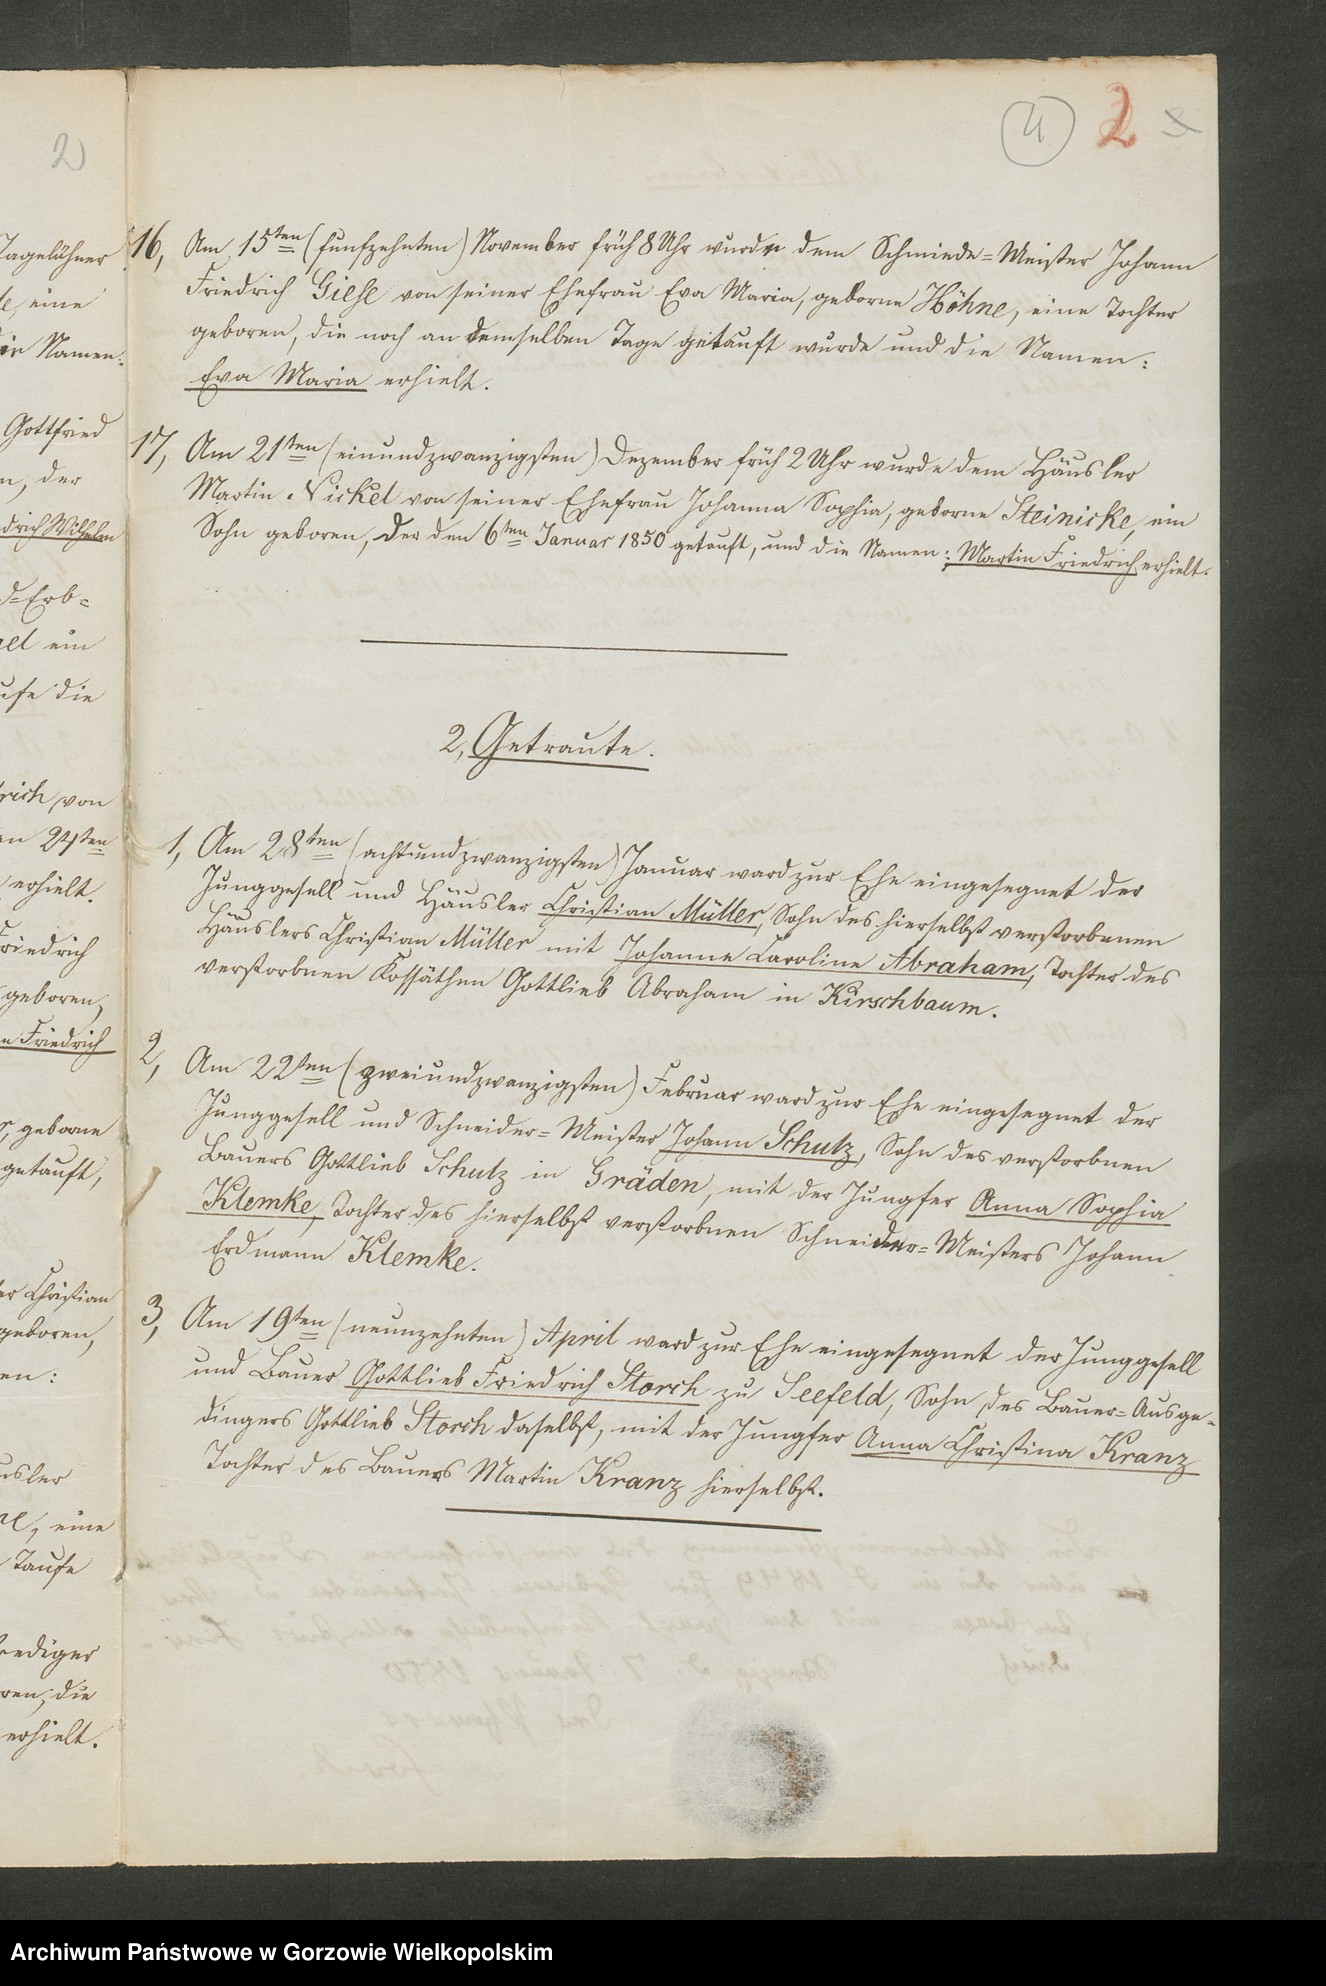 2
Tagelöhner
eine
Namen:
Gottfried
der
drich Wilhelm
d=Erb=
ein
die
von
24sten
erhielt.
Friedrich
geboren,
Friedrich
geborne
getauft,
Christian
geboren,
en:
eine
Taufe
die
erhielt.
4 2 3
16, Am 15ten (funfzehnten) November früh 8 Uhr wurde dem Schmiede=Meister Johann
Friedrich Giese von seiner Ehefrau Eva Maria, geborne Höhne, eine Tochter
geboren, die noch an demselben Tage getauft wurde und die Namen:
Eva Maria erhielt.
17, Am 21sten (einundzwanzigsten) Dezember früh 2 Uhr wurde dem Häusler
Martin Nickel von seiner Ehefrau Johanna Sophia, geborne Steinicke, ein
Sohn geboren, der den 6ten Januar 1850 getauft, und die Namen: Martin Friedrich erhielt.
2, Getraute.
1, Am 28ten (achtundzwanzigsten) Januar ward zur Ehe eingesegnet der
Junggesell und Häusler Christian Müller, Sohn des hierselbst verstorbenen
Häuslers Christian Müller mit Johanne Caroline Abraham, Tochter des
verstorbnen Kossäthen Gottlieb Abraham in Kirschbaum.
2, Am 22ten (zweiundzwanzigsten) Februar ward zur Ehe eingesegnet der
Junggesell und Schneider=Meister Johann Schulz, Sohn des verstorbnen
Bauers Gottlieb Schulz in Gräden, mit der Jungfer Anna Sophia
Klemke, Tochter des hierselbst verstorbnen Schneider=Meisters Johann
Erdmann Klemke.
3, Am 19ten (neunzehnten) April ward zur Ehe eingesegnet der Junggesell
und Bauer Gottlieb Friedrich Storch zu Seefeld, Sohn des Bauer=Ausge-
dingers Gottlieb Storch daselbst, mit der Jungfer Anna Christina Kranz
Tochter des Bauers Martin Kranz hierselbst.
Archiwum Państwowe w Gorzowie Wielkopolskim